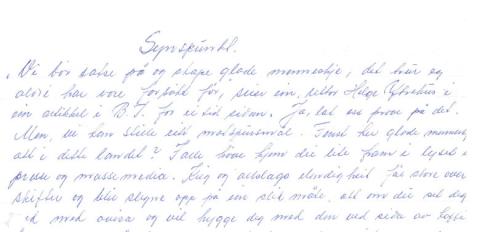 Synspunkt.
"Vi bør satse på og skape glade mennesje, det trur eg
aldri har vore forsøkt før, seier ein, rektor Helge
ein artikkel i B.T. for ei tid sidan. Ja, lat oss prøve på det.
Men, eg kan stille eitt motspursmål. Finst her glade menneskj
att i dette landet? I alle høve kjem dei lite fram i lyset i
presse og massemedia. Krig og elendigheit får store over
skrifter og blir slegne opp på ein slik måte, att om du set deg
ned med avisa og vil hygge deg med den ved sida av kaffi